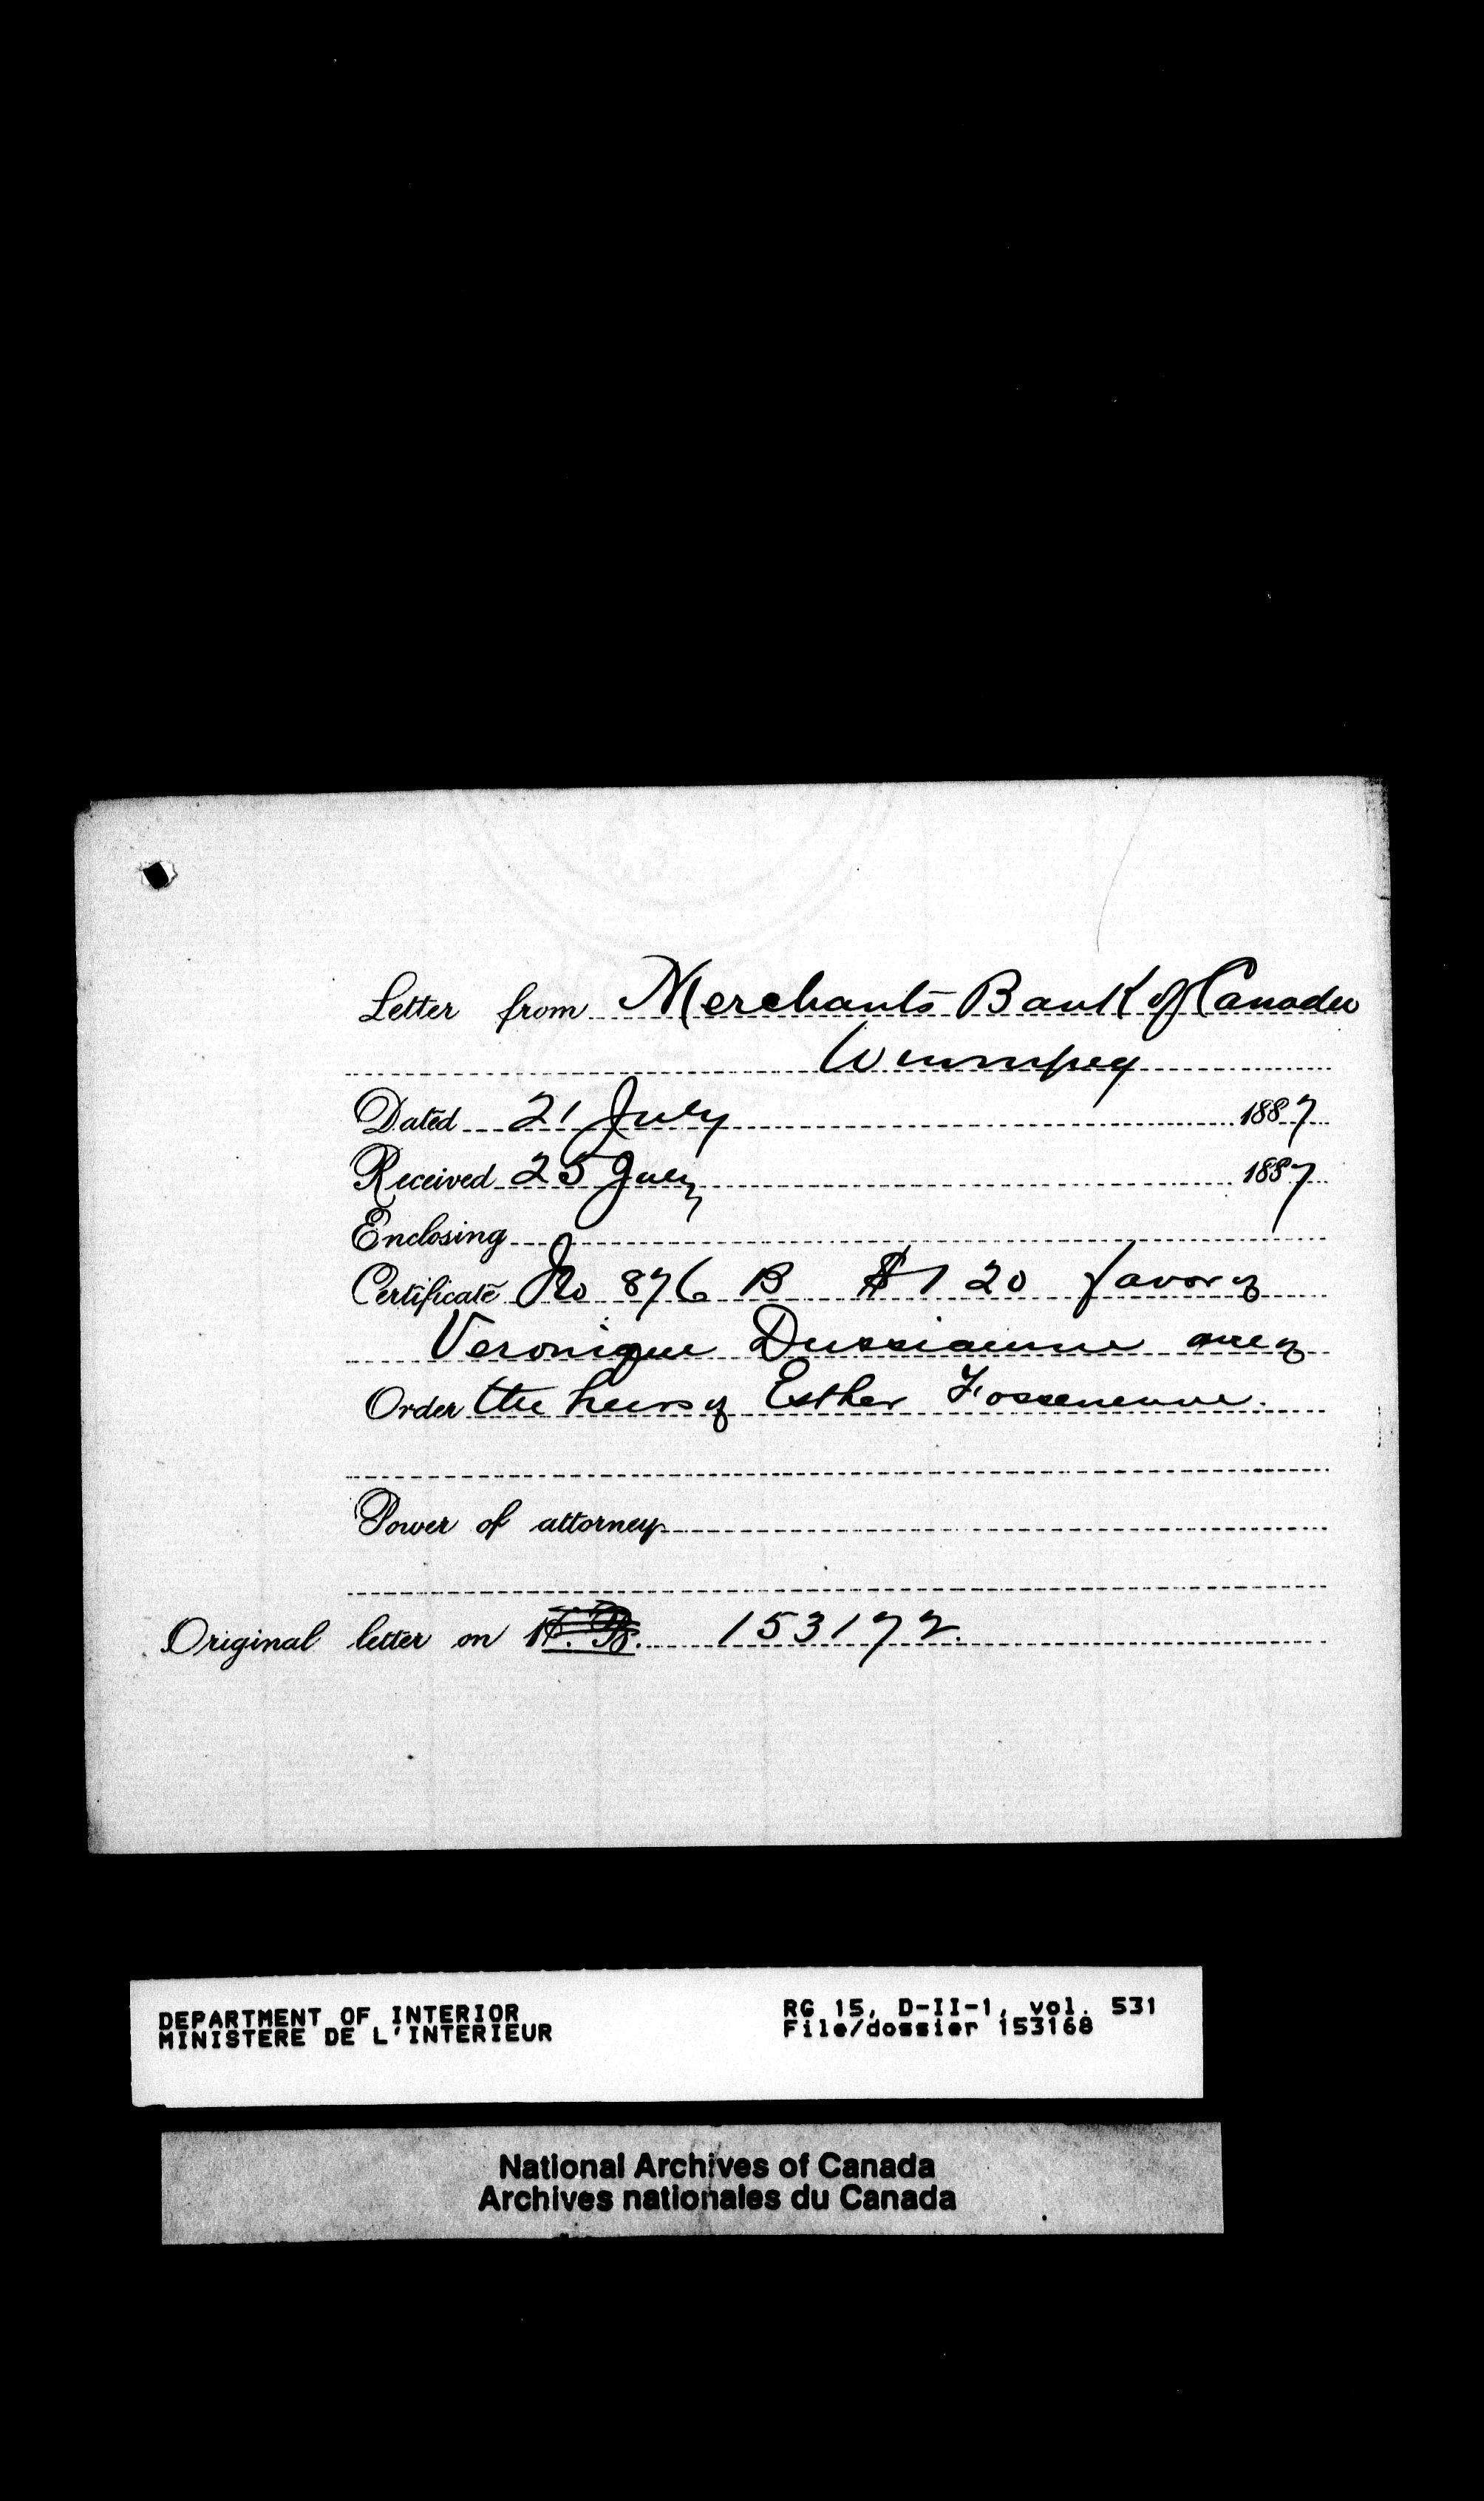 Letter from Merchants Bank of Canada
Winnipeg
Dated 21 July 1887
Received 25 July 1887
Enclosing
Certificate No 876 B $120 favor of
Veronique one of
Order the heirs of Esther Fosseneuve.
Power of attorney
Original letter on 153172.
DEPARTMENT OF INTERIOR
MINISTERE DE L'INTERIEUR
RG 15, D-II-1, vol. 531
File/dossier 153168
National Archives of Canada
Archives nationales du Canada